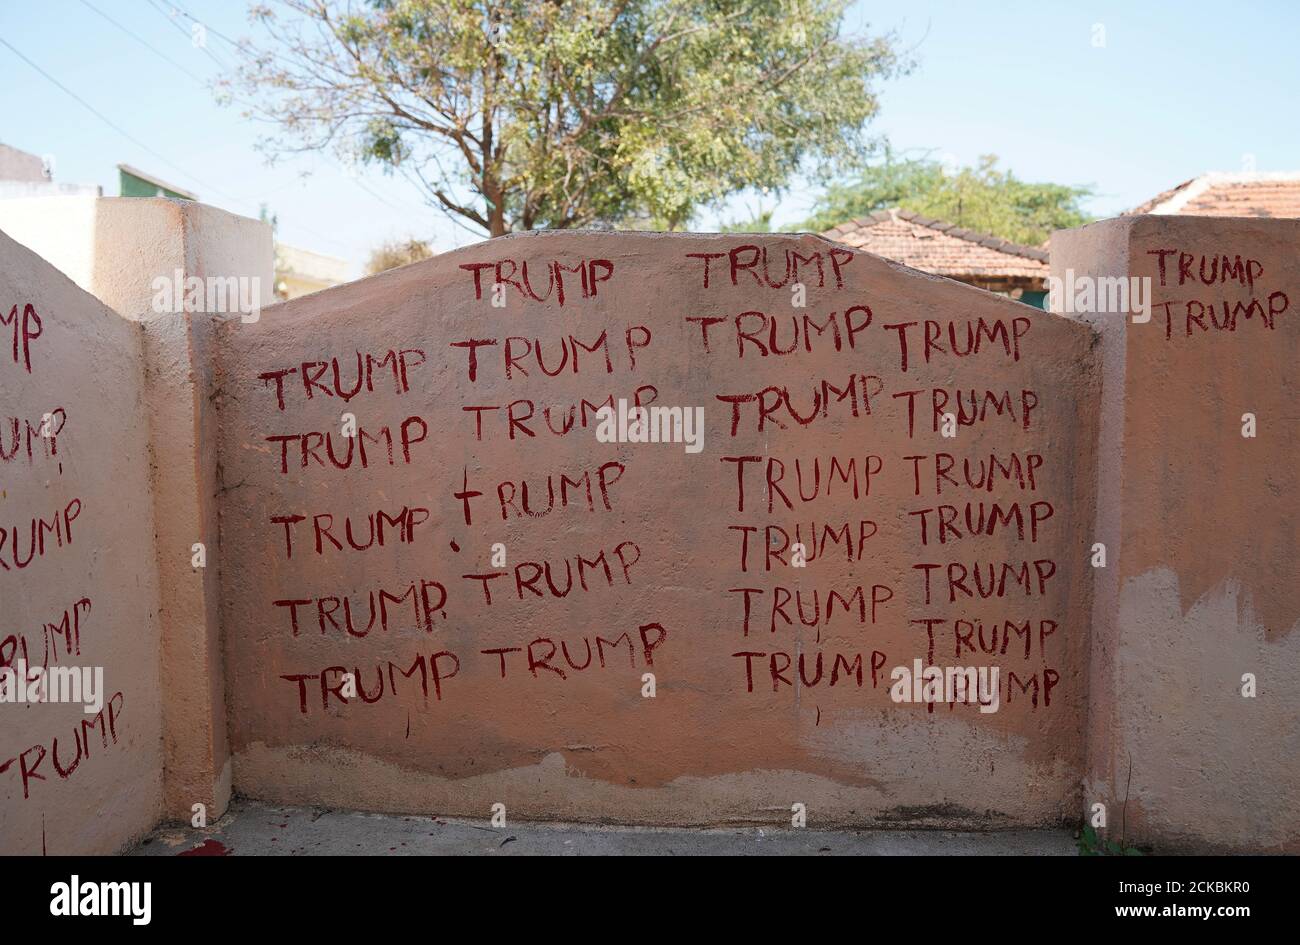 TRUMP TRUMP
TRUMP TRUMP TRUMP TRUMP
TRUMP TRUMP TRUMP TRUMP
TRUMP TRUMP TRUMP TRUMP
TRUMP TRUMP TRUMP TRUMP
TRUMP TRUMP TRUMP TRUMP
TRUMP TRUMP TRUMP TRUMP
TRUMP
TRUMP
TRUMP
UMP
RUMP
RUMP
TRUMP
alamy
alamy
Image ID: 2CKBKR0
www.alamy.com